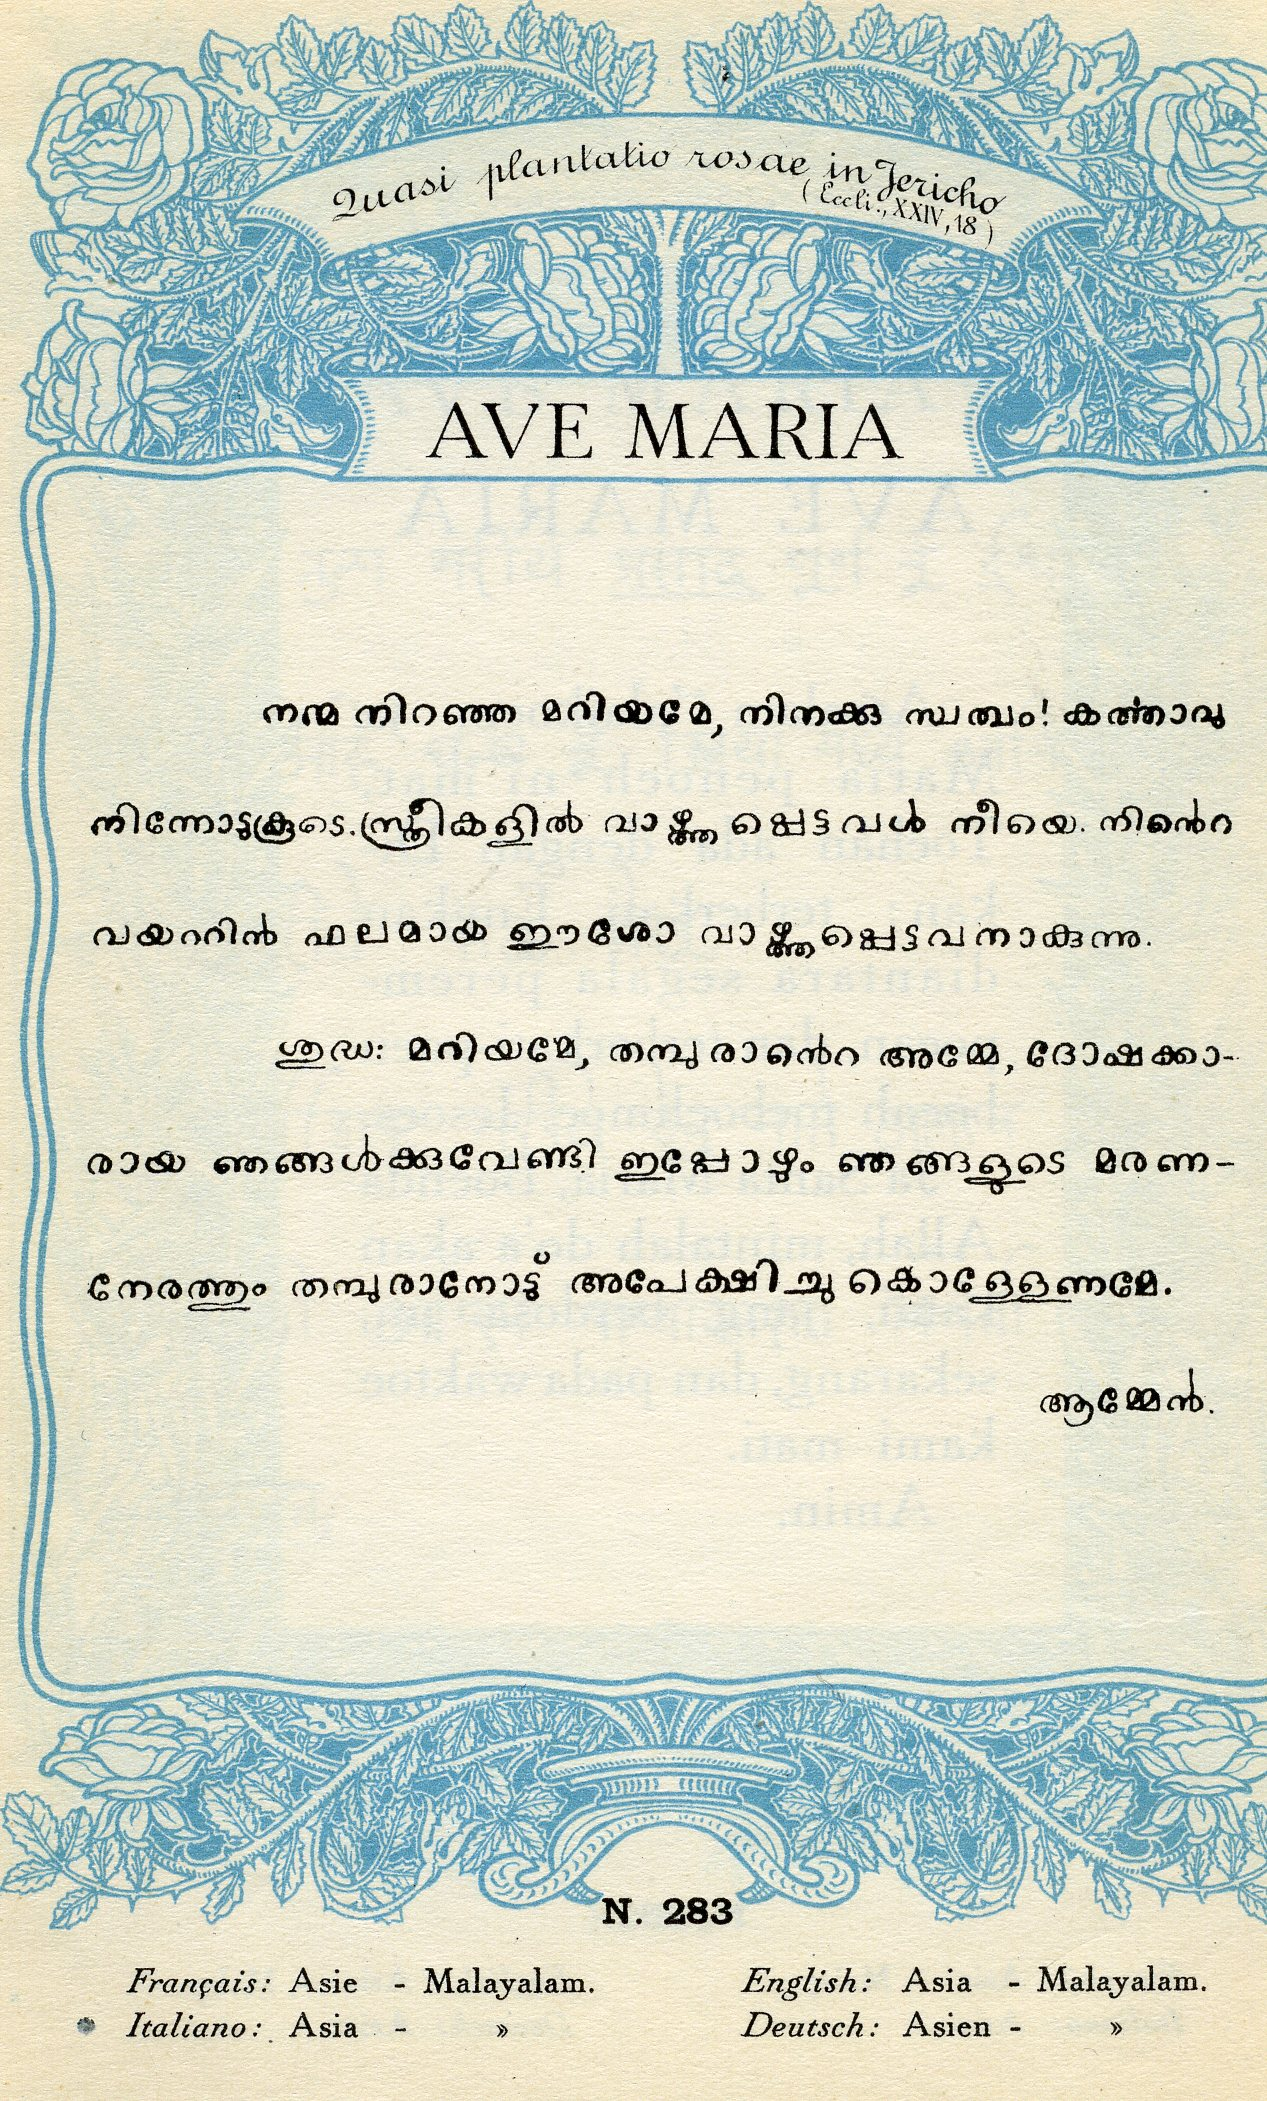 Quasi plantatio rosae in Jericho
(Eccli., XXIV, 18)
AVE MARIA
നന്മ നിറഞ്ഞ മറിയമേ, നിനക്കു സ്വസ്ഥം! കൎത്താവു
നിന്നോടുകൂടെ. സ്ത്രീകളിൽ വാഴ്ത്തപ്പെട്ടവൾ നീയെ. നിൻെറ
വയററിൻ ഫലമായ ഈശോ വാഴ്ത്തപ്പെട്ടവനാകുന്നു.
ശുദ്ധ: മറിയമേ, തമ്പുരാൻെറ അമ്മേ, ദോഷക്കാ-
രായ ഞങ്ങൾക്കുവേണ്ടി ഇപ്പോഴും ഞങ്ങളുടെ മരണ-
നേരത്തും തമ്പുരാനോടു് അപേക്ഷിച്ചു കൊള്ളേണമേ.
ആമ്മേൻ.
N. 283
Français: Asie - Malayalam. English: Asia - Malayalam.
Italiano: Asia - » Deutsch: Asien - »